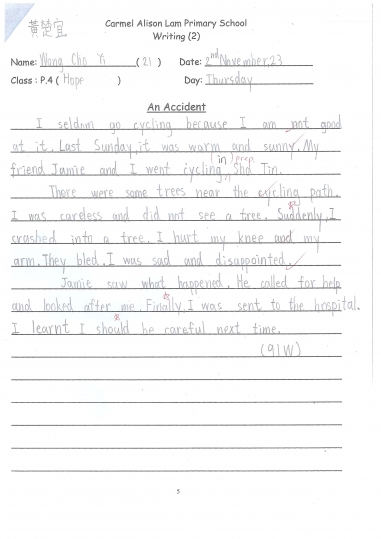 黃楚宜
Carmel Alison Lam Primary School
Writing (2)
Name: Wong Cho Yi (21) Date: 2nd November, 23
Class: P.4 (Hope) Day: Thursday
An Accident
I seldom go cycling because I am not good
at it. Last Sunday, it was warm and sunny. My
in prep.
friend Jamie and I went cycling in Sha Tin.
There were some trees near the cycling path.
I was careless and did not see a tree. Suddenly, I
crashed into a tree. I hurt my knee and my
arm. They bled. I was sad and disappointed.
Jamie saw what happened. He called for help
and looked after me. Finally, I was sent to the hospital.
I learnt I should be careful next time.
(91W)
5